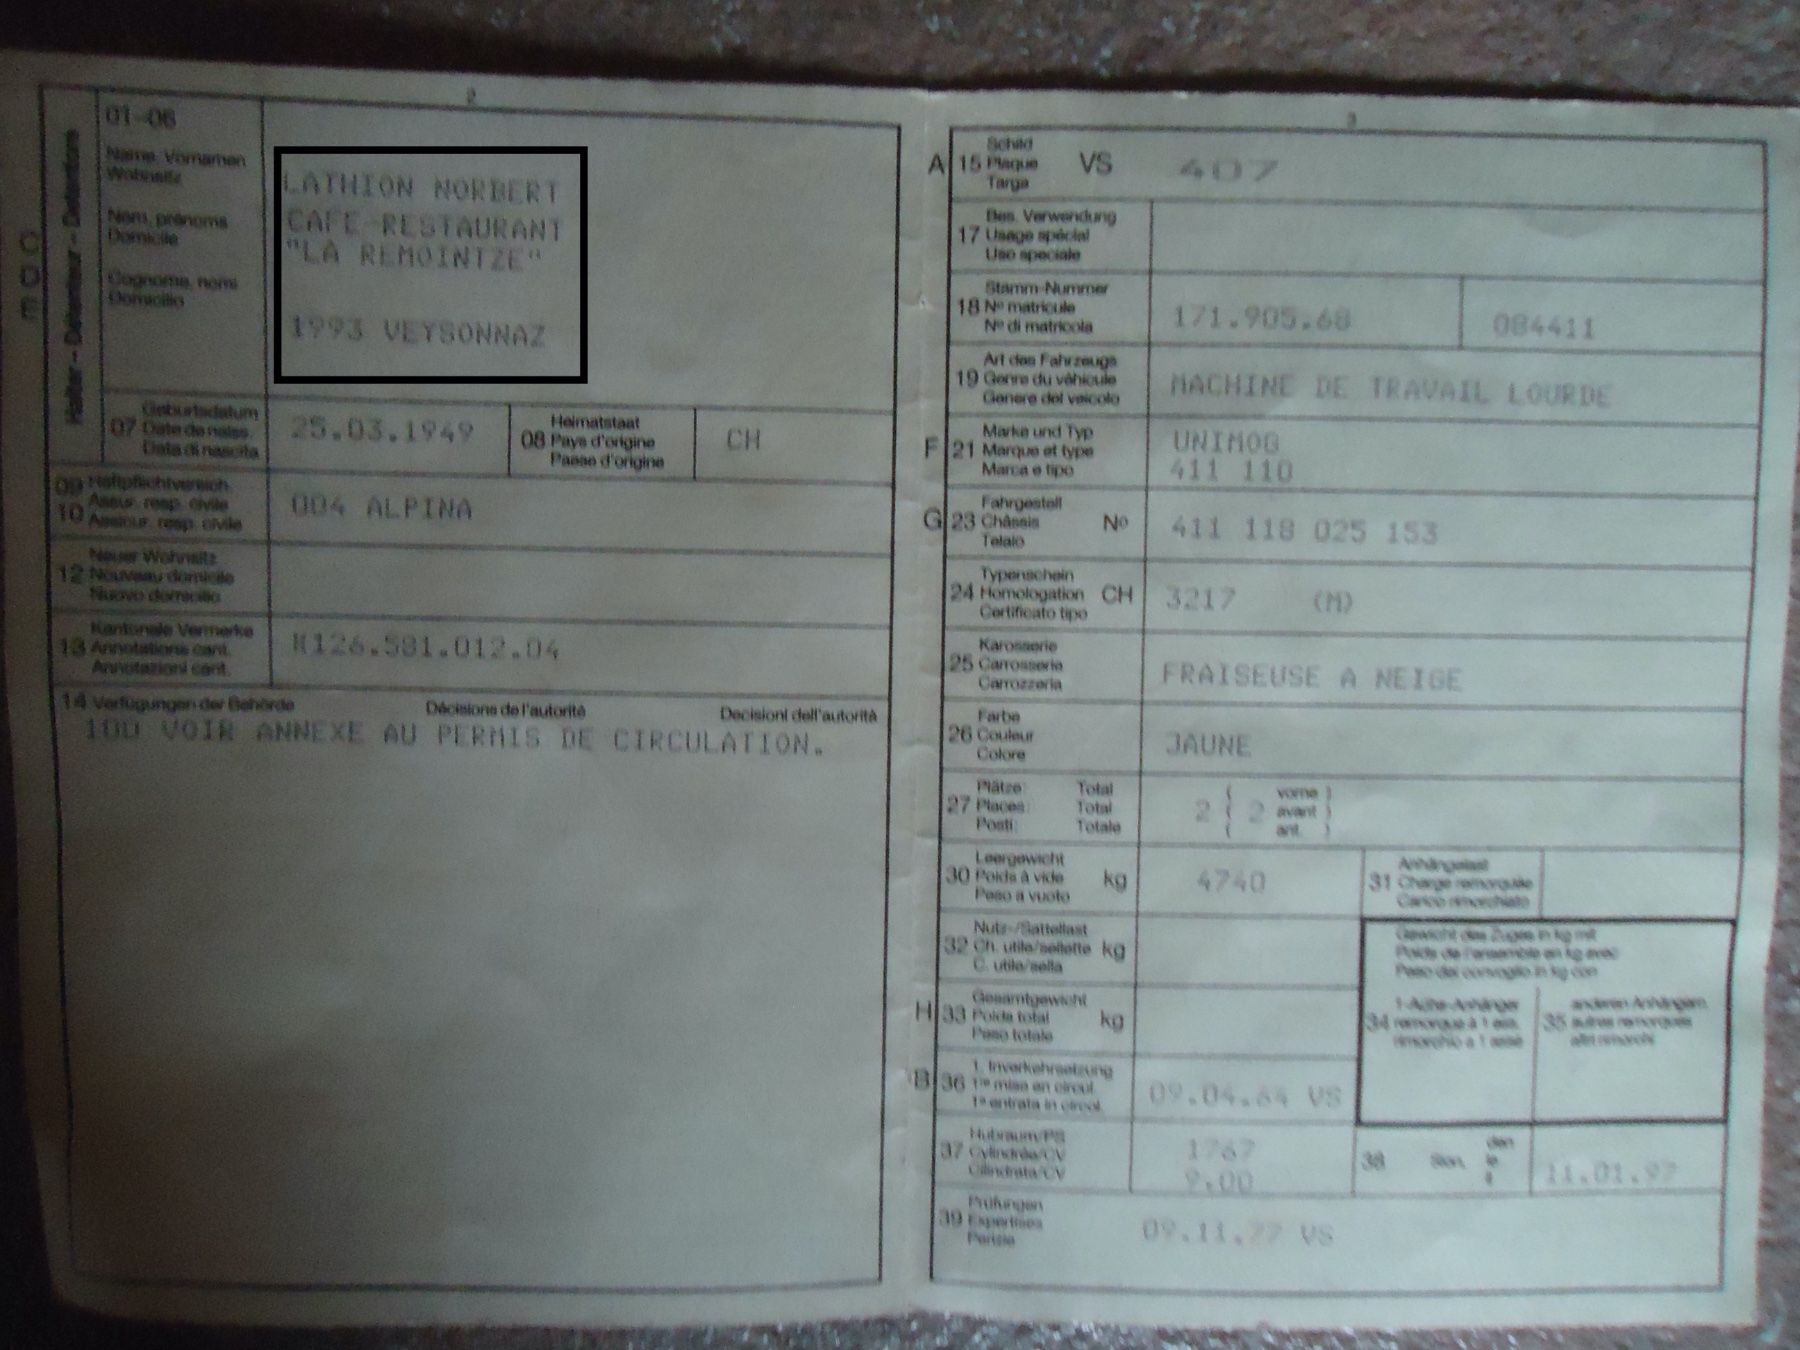 2
01-06
Halter - Détenteur - Detentore
C
D
E
Name, Vornamen
Wohnsitz
Nom, prénoms
Domicile
Cognome, nomi
Domicilio
LATHION NORBERT
CAFE-RESTAURANT
"LA REMOINTZE"
1993 VEYSONNAZ
07 Geburtsdatum
Date de naiss.
Data di nascita
25.03.1949
08 Heimatstaat
Pays d'origine
Paese d'origine
CH
09 Haftpflichtversich.
10 Assur. resp. civile
Assicur. resp. civile
004 ALPINA
12 Neuer Wohnsitz
Nouveau domicile
Nuovo domicilio
13 Kantonale Vermerke
Annotations cant.
Annotazioni cant.
K126.581.012.04
14 Verfügungen der Behörde Décisions de l'autorité Decisioni dell'autorità
100 VOIR ANNEXE AU PERMIS DE CIRCULATION.
3
A 15 Schild
Plaque
Targa
VS 407
17 Bes. Verwendung
Usage spécial
Uso speciale
18 Stamm-Nummer
Nº matricule
Nº di matricola
171.905.68 084411
19 Art des Fahrzeugs
Genre du véhicule
Genere del veicolo
MACHINE DE TRAVAIL LOURDE
F 21 Marke und Typ
Marque et type
Marca e tipo
UNIMOG
411 110
G 23 Fahrgestell
Châssis Nº
Telaio
411 118 025 153
24 Typenschein
Homologation CH
Certificato tipo
3217 (M)
25 Karosserie
Carrosserie
Carrozzeria
FRAISEUSE A NEIGE
26 Farbe
Couleur
Colore
JAUNE
27 Plätze: Total
Places: Total
Posti: Totale
2 ( 2 vorne )
( avant )
( ant. )
30 Leergewicht
Poids à vide kg
Peso a vuoto
4740
31 Anhängelast
Charge remorquée
Carico rimorchiato
32 Nutz-/Sattellast
Ch. utile/sellette kg
C. utile/sella
Gewicht des Zuges in kg mit
Poids de l'ensemble en kg avec
Peso del convoglio in kg con
H 33 Gesamtgewicht
Poids total kg
Peso totale
34 1-Achs-Anhänger
remorque à 1 ess.
rimorchio a 1 asse
35 anderen Anhängern
autres remorques
altri rimorchi
B 36 1. Inverkehrsetzung
1re mise en circul.
1a entrata in circol.
09.04.64 VS
37 Hubraum/PS
Cylindrée/CV
Cilindrata/CV
1767
9.00
38 Sion, den
le
il
11.01.97
39 Prüfungen
Expertises
Perizie
09.11.77 VS